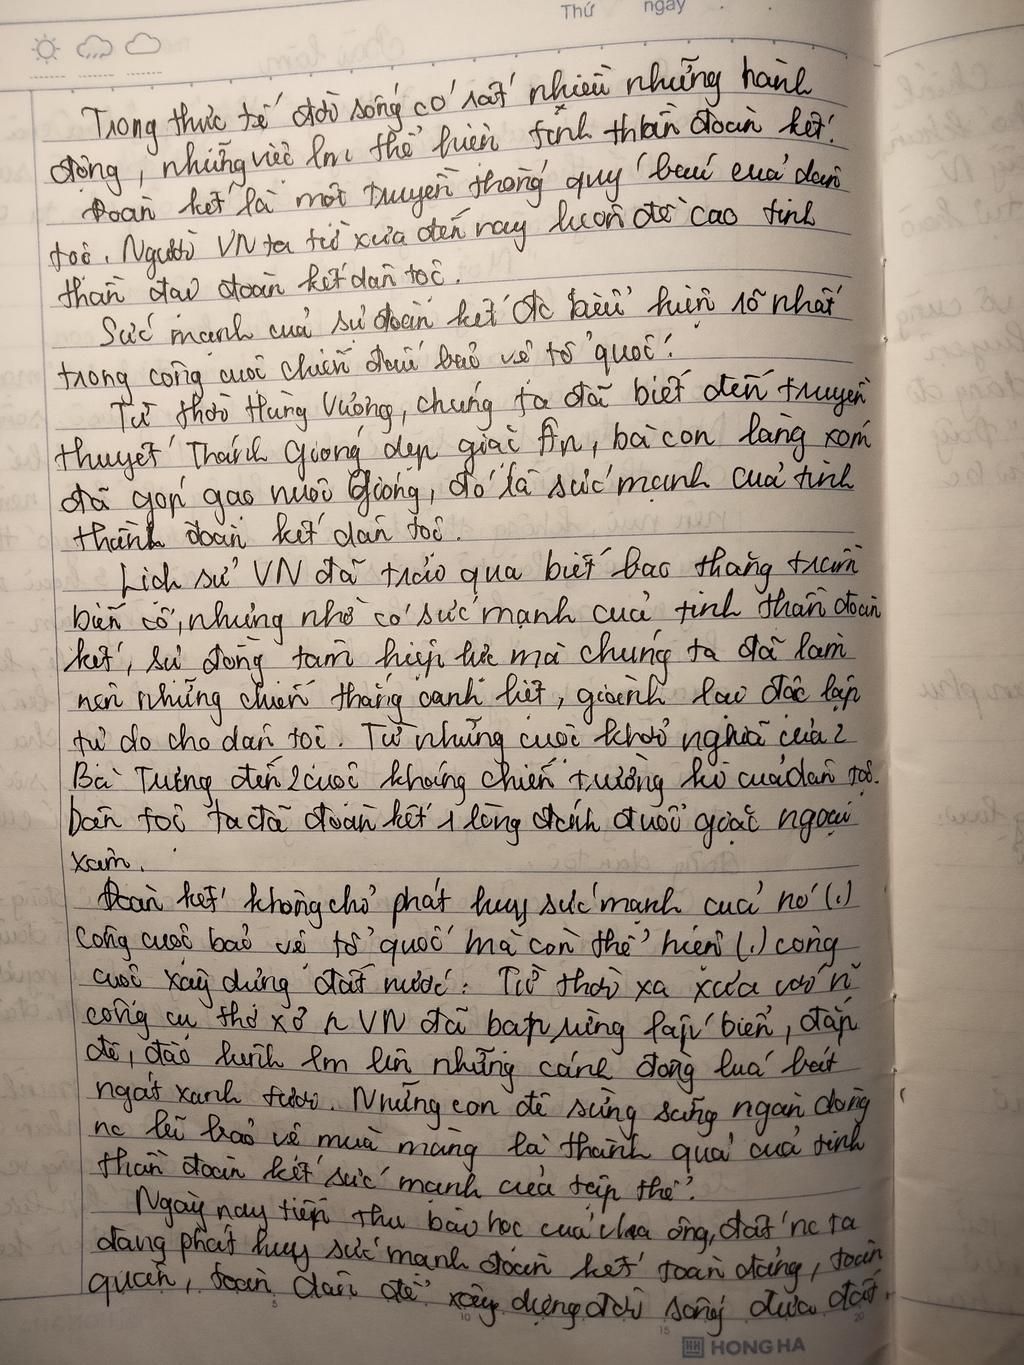 Thứ ngày
Trong thực tế đời sống có rất nhiều những hành
động, những việc lm thể hiện tinh thần đoàn kết.
Đoàn kết là một truyền thống quý báu của dân
tộc. Người VN ta từ xưa đến nay luôn đề cao tinh
thần đoàn kết dân tộc.
Sức mạnh của sự đoàn kết đc biểu hiện rõ nhất
trong công cuộc chiến đấu bảo vệ tổ quốc.
Từ thời Hùng Vương, chúng ta đã biết đến truyền
thuyết Thánh Gióng dẹp giặc Ân, bà con làng xóm
đã góp gạo nuôi Gióng, đó là sức mạnh của tinh
thần đoàn kết dân tộc.
Lịch sử VN đã trải qua biết bao thăng trầm
biến cố, nhưng nhờ có sức mạnh của tinh thần đoàn
kết, sự đồng tâm hiệp lực mà chúng ta đã làm
nên những chiến thắng oanh liệt, giành lại độc lập
tự do cho dân tộc. Từ những cuộc khởi nghĩa của 2
Bà Trưng đến 2 cuộc kháng chiến trường kì của dân tộc.
Dân tộc ta đã đoàn kết 1 lòng đánh đuổi giặc ngoại
xâm.
Đoàn kết không chỉ phát huy sức mạnh của nó (.)
công cuộc bảo vệ tổ quốc mà còn thể hiện (.) công
cuộc xây dựng đất nước. Từ thời xa xưa với n~
công cụ thô sơ n VN đã bạt rừng lấp biển, đắp
đê, đào kênh lm lên những cánh đồng lúa bát
ngát xanh tươi. Những con đê sừng sững ngăn dòng
nc lũ bảo vệ mùa màng là thành quả của tinh
thần đoàn kết sức mạnh của tập thể.
Ngày nay tiếp thu bài học của cha ông, đất nc ta
đang phát huy sức mạnh đoàn kết toàn đảng, toàn
quân, toàn dân để xây dựng đời sống đưa đất
5 10 15 20
HONG HA